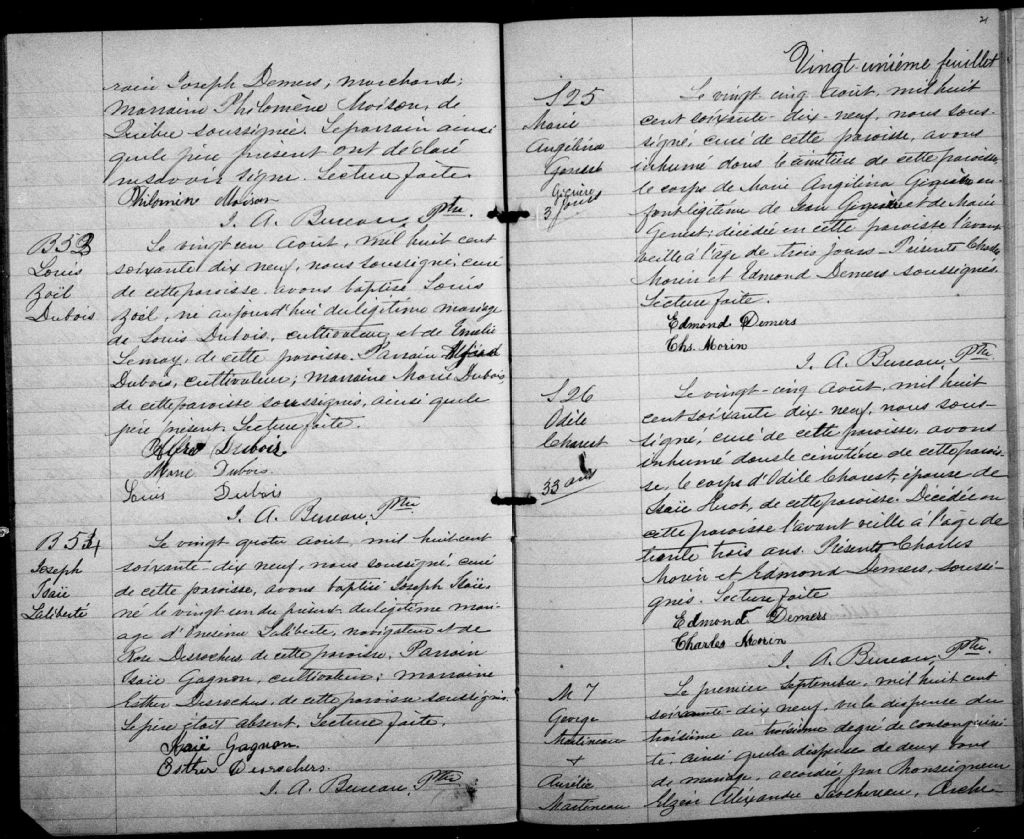 rain Joseph Demers, marchand;
marraine Philomène Moison, de
Québec soussignée. Le parrain ainsi
que le père présent ont déclaré
ne savoir signer. Lecture faite.
Philomène Moison
J. A. Bureau, Ptre.
B 53
Louis
Zoël
Dubois
Le vingt un Août, mil huit cent
soixante dix neuf, nous soussigné, curé
de cette paroisse avons baptisé Louis
Zoël, né aujourd'hui du légitime mariage
de Louis Dubois, cultivateur, et de Emélie
Lemay, de cette paroisse. Parrain Alfred
Dubois, cultivateur; marraine Marie Dubois,
de cette paroisse soussignés, ainsi que le
père présent. Lecture faite.
Alfred Dubois
Marie Dubois
Louis Dubois
J. A. Bureau, Ptre
B 54
Joseph
Isaïe
Laliberté
Le vingt quatre Août, mil huit cent
soixante dix neuf, nous soussigné, curé
de cette paroisse, avons baptisé Joseph Isaïe,
né le vingt un du présent du légitime mari-
age d'Onésime Laliberté, navigateur et de
Rose Desrochers, de cette paroisse. Parrain
Isaïe Gagnon, cultivateur; marraine
Esther Desrochers, de cette paroisse soussignés.
Le père était absent. Lecture faite.
Isaïe Gagnon
Esther Desrochers.
J. A. Bureau, Ptre
21
Vingt-unième feuillet
S 25
Marie
Angélina
Genest
Giguère
3 jours
Le vingt-cinq Août, mil huit
cent soixante-dix-neuf, nous sous-
signé, curé de cette paroisse, avons
inhumé dans le cimetière de cette paroisse,
le corps de Marie Angélina Giguère en-
fant légitime de Jean Giguère et de Marie
Genest; décédée en cette paroisse l'avant
veille à l'âge de trois jours. Présents Charles
Morin et Edmond Demers soussignés.
Lecture faite.
Edmond Demers
Chs. Morin
J. A. Bureau, Ptre
S 26
Odile
Charest
33 ans
Le vingt-cinq Août, mil huit
cent soixante dix-neuf, nous sous-
signé, curé de cette paroisse, avons
inhumé dans le cimetière de cette parois-
se, le corps d'Odile Charest, épouse de
Isaïe Huot, de cette paroisse. Décédée en
cette paroisse l'avant veille à l'âge de
trente trois ans. Présents Charles
Morin et Edmond Demers, soussi-
gnés. Lecture faite
Edmond Demers
Charles Morin
J. A. Bureau, Ptre.
M 7
George
Martineau
+
Aurélie
Martineau
Le premier Septembre, mil huit cent
soixante-dix neuf, vu la dispense du
troisième au troisième degré de consanguini-
té, ainsi que la dispense de deux bans
de mariage, accordée par Monseigneur
Elzéar Aléxandre Taschereau, Arche-